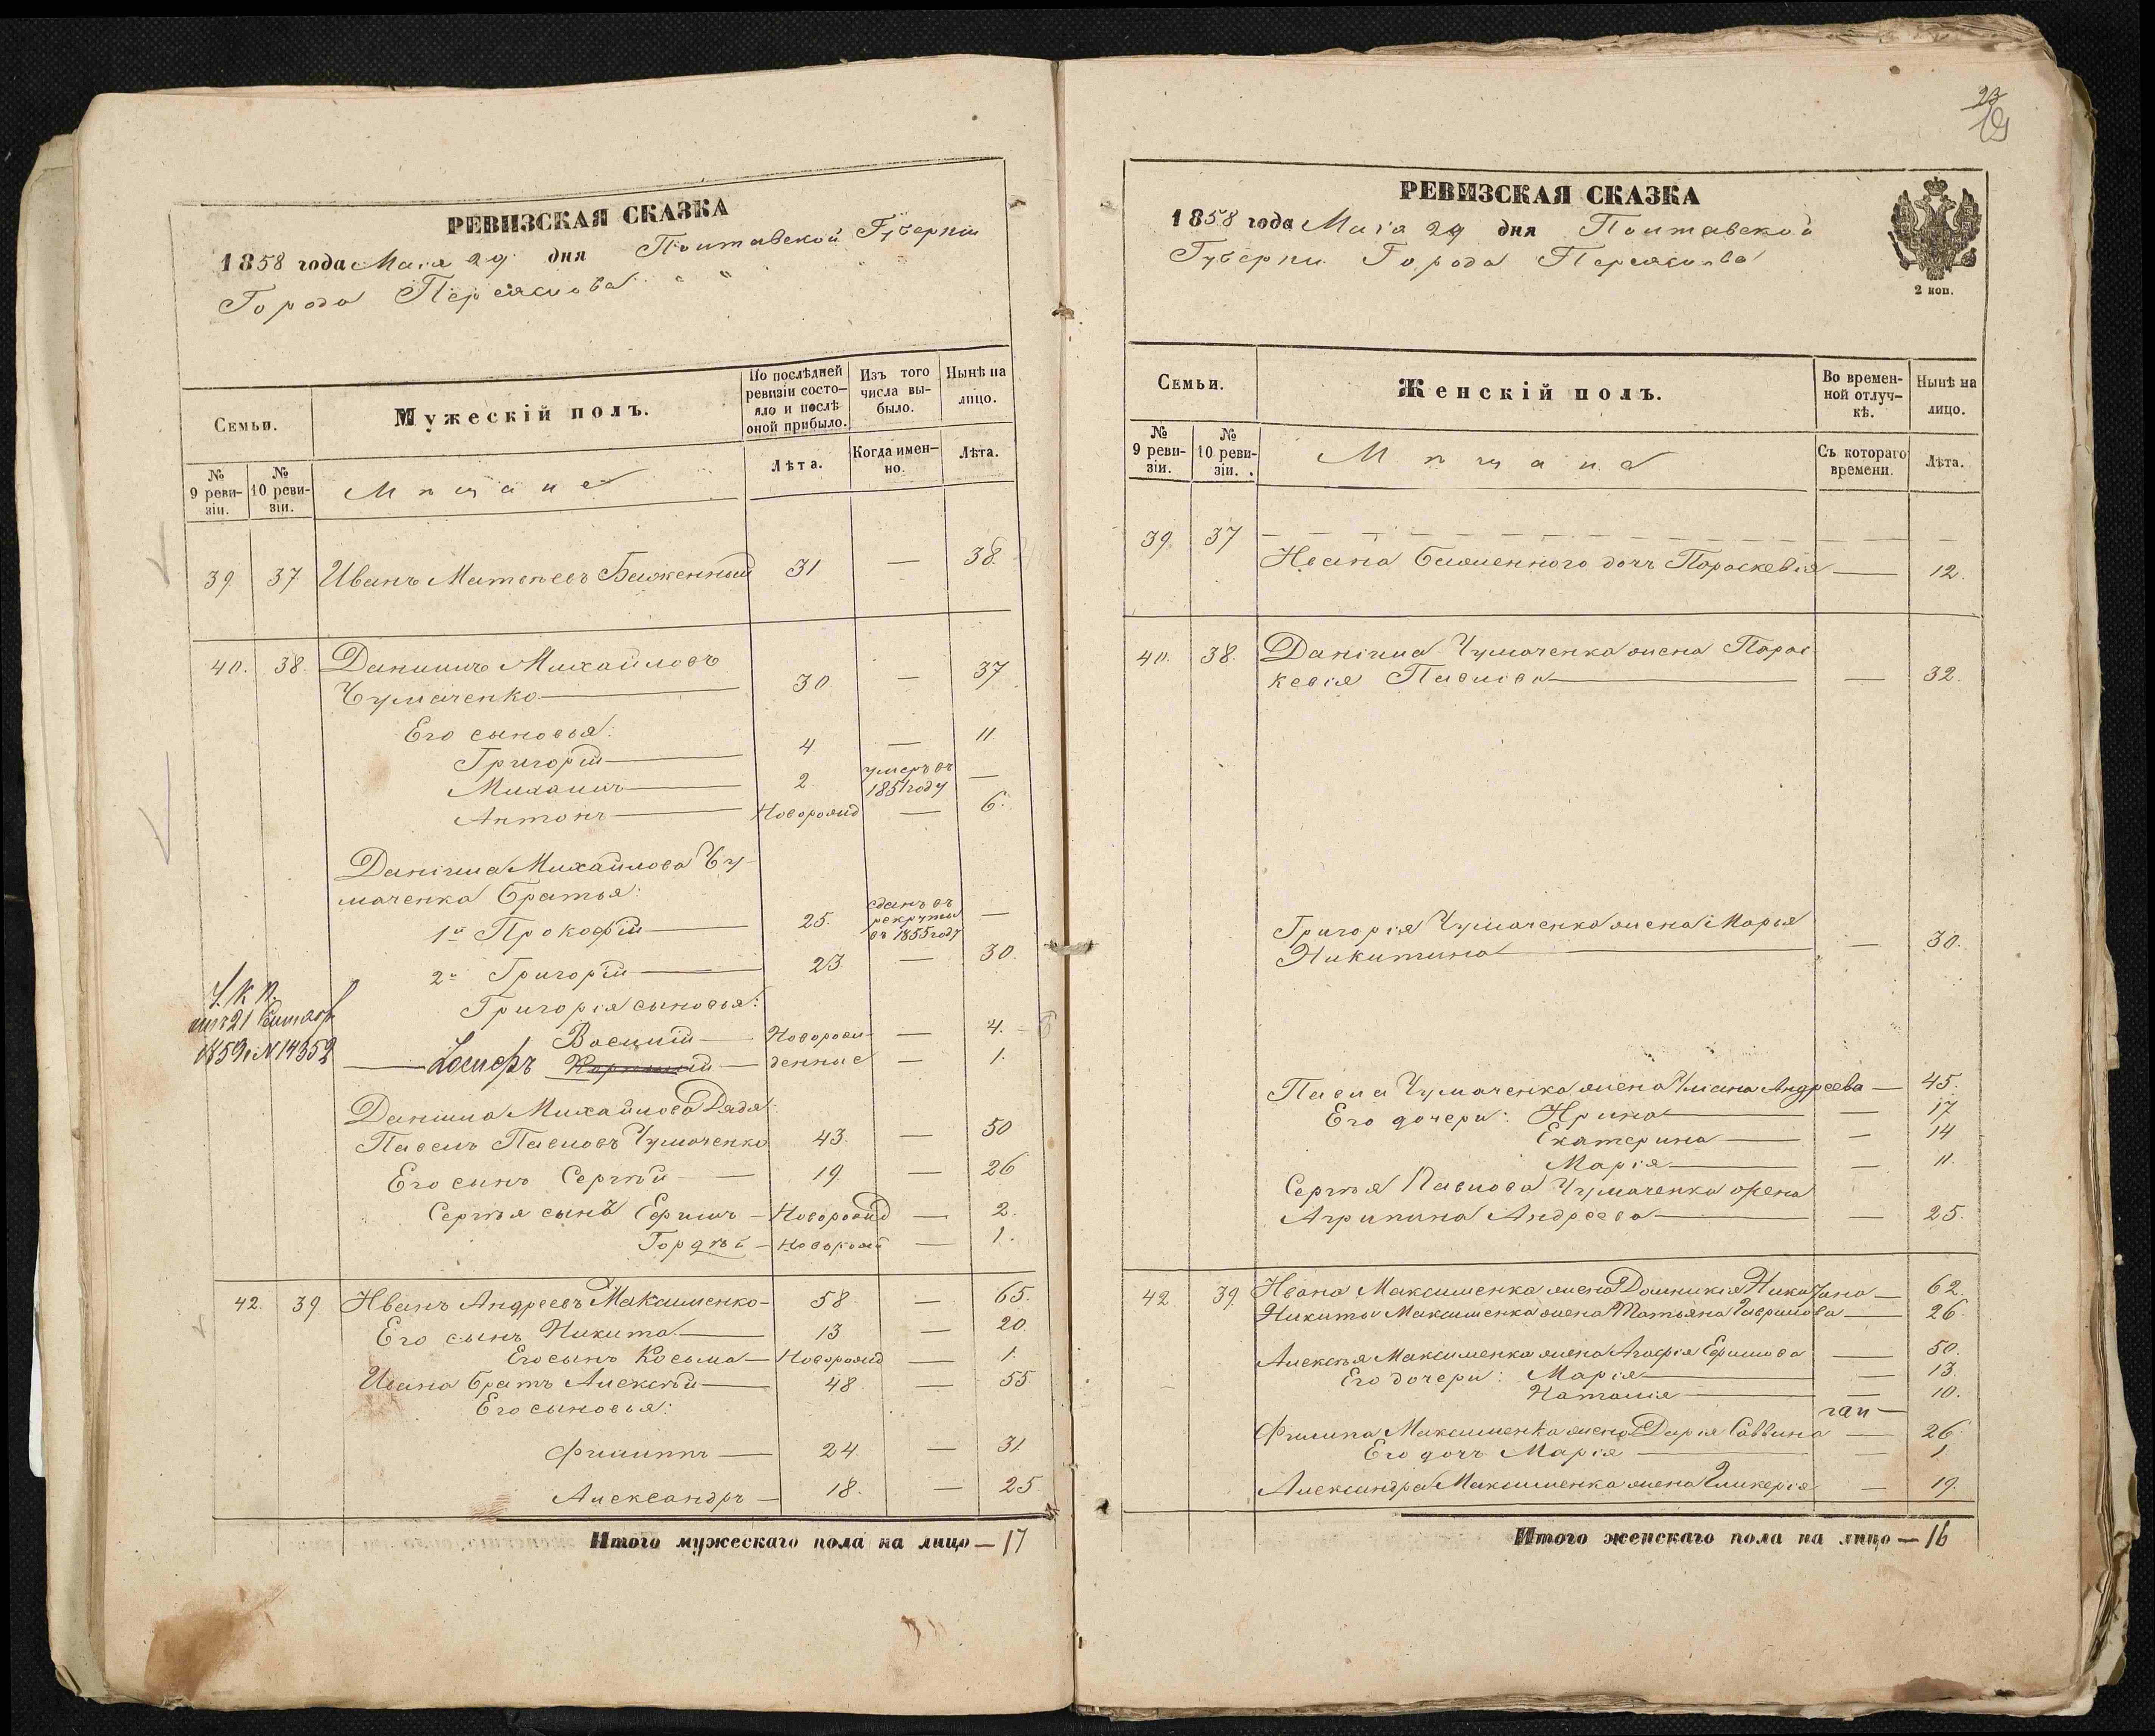 РЕВИЗСКАЯ СКАЗКА
1858 года Мая 29 дня Полтавской Губерніи
Города Переяслова
Семьи.
Мужескій полъ.
По послѣдней ревизіи состо-
яло и послѣ оной прибыло.
Изъ того числа вы-
было.
Нынѣ на лицо.
№ 9 реви-
зіи.
№ 10 реви-
зіи.
Мѣщане
Лѣта.
Когда имен-
но.
Лѣта.
39 37 Иванъ Матвѣевъ Блаженный 31 — 38.
40. 38. Даніилъ Михайловъ
Чумаченко — 30 — 37
Его сыновья:
Григорій — 4. — 11.
Михаилъ — 2. умеръ въ 1851 году —
Антонъ — Новорожд — 6.
Даніила Михайлова Чу-
маченка братья:
1й Прокофій — 25. сданъ въ рекруты въ 1855 году —
2й Григорій — 23 — 30.
Григорія сыновья:
Василій — Новорож- — 4.
— Іосифъ — денные — 1.
У. К. П.
1859 N 14352
Даніила Михайлова Дядя:
Павелъ Павловъ Чумаченко 43. — 50
Его сынъ Сергѣй — 19 — 26
Сергѣя сынъ Ефимъ — Новорожд — 2.
Гордѣй — Новорож — 1.
42. 39. Иванъ Андреевъ Максименко — 58. — 65.
Его сынъ Никита — 13 — 20.
Его сынъ Косьма — Новорожд — 1.
Ивана братъ Алексѣй — 48. — 55
Его сыновья:
Филиппъ — 24. — 31.
Александръ — 18. — 25
Итого мужескаго пола на лицо — 17
23
19
РЕВИЗСКАЯ СКАЗКА
1858 года Мая 29 дня Полтавской
Губерніи Города Переяслова
2 коп.
Семьи.
Женскій полъ.
Во времен-
ной отлуч-
кѣ.
Нынѣ на лицо.
№ 9 реви-
зіи.
№ 10 реви-
зіи.
Мѣщане
Съ котораго времени.
Лѣта.
39. 37 — — — — —
Ивана Блаженного дочь Параскевія — 12.
40. 38. Даніила Чумаченка жена Парас-
кевія Павлова — — 32.
Григорія Чумаченка жена Марья
Никитина — — 30.
Павла Чумаченка жена Уліана Андреева — 45.
Его дочери: Ирина — — 17
Екатерина — — 14
Марія — — 11.
Сергѣя Павлова Чумаченка жена
Агрипина Андреева — — 25.
42 39. Ивана Максименка жена Домникія Никитина — 62.
Никиты Максименка жена Татьяна Гаврилова — 26.
Алексѣя Максименка жена Агафія Ефимова — 50.
Его дочери: Марія — — 13.
Наталія — — 10.
Филипа Максименка жена Дарія Саввина — 26.
Его дочь Марія — — 1
Александра Максименка жена Гликерія — 19.
Итого женскаго пола на лицо — 16